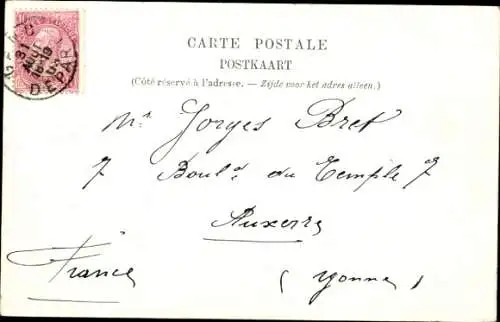 CARTE POSTALE
POSTKAART
(Côté réservé à l'adresse. — Zijde voor het adres alleen.)
Mr Gorges Bret
7 Bould du Temple 7
Auxerre
France (Yonne)
DEPART